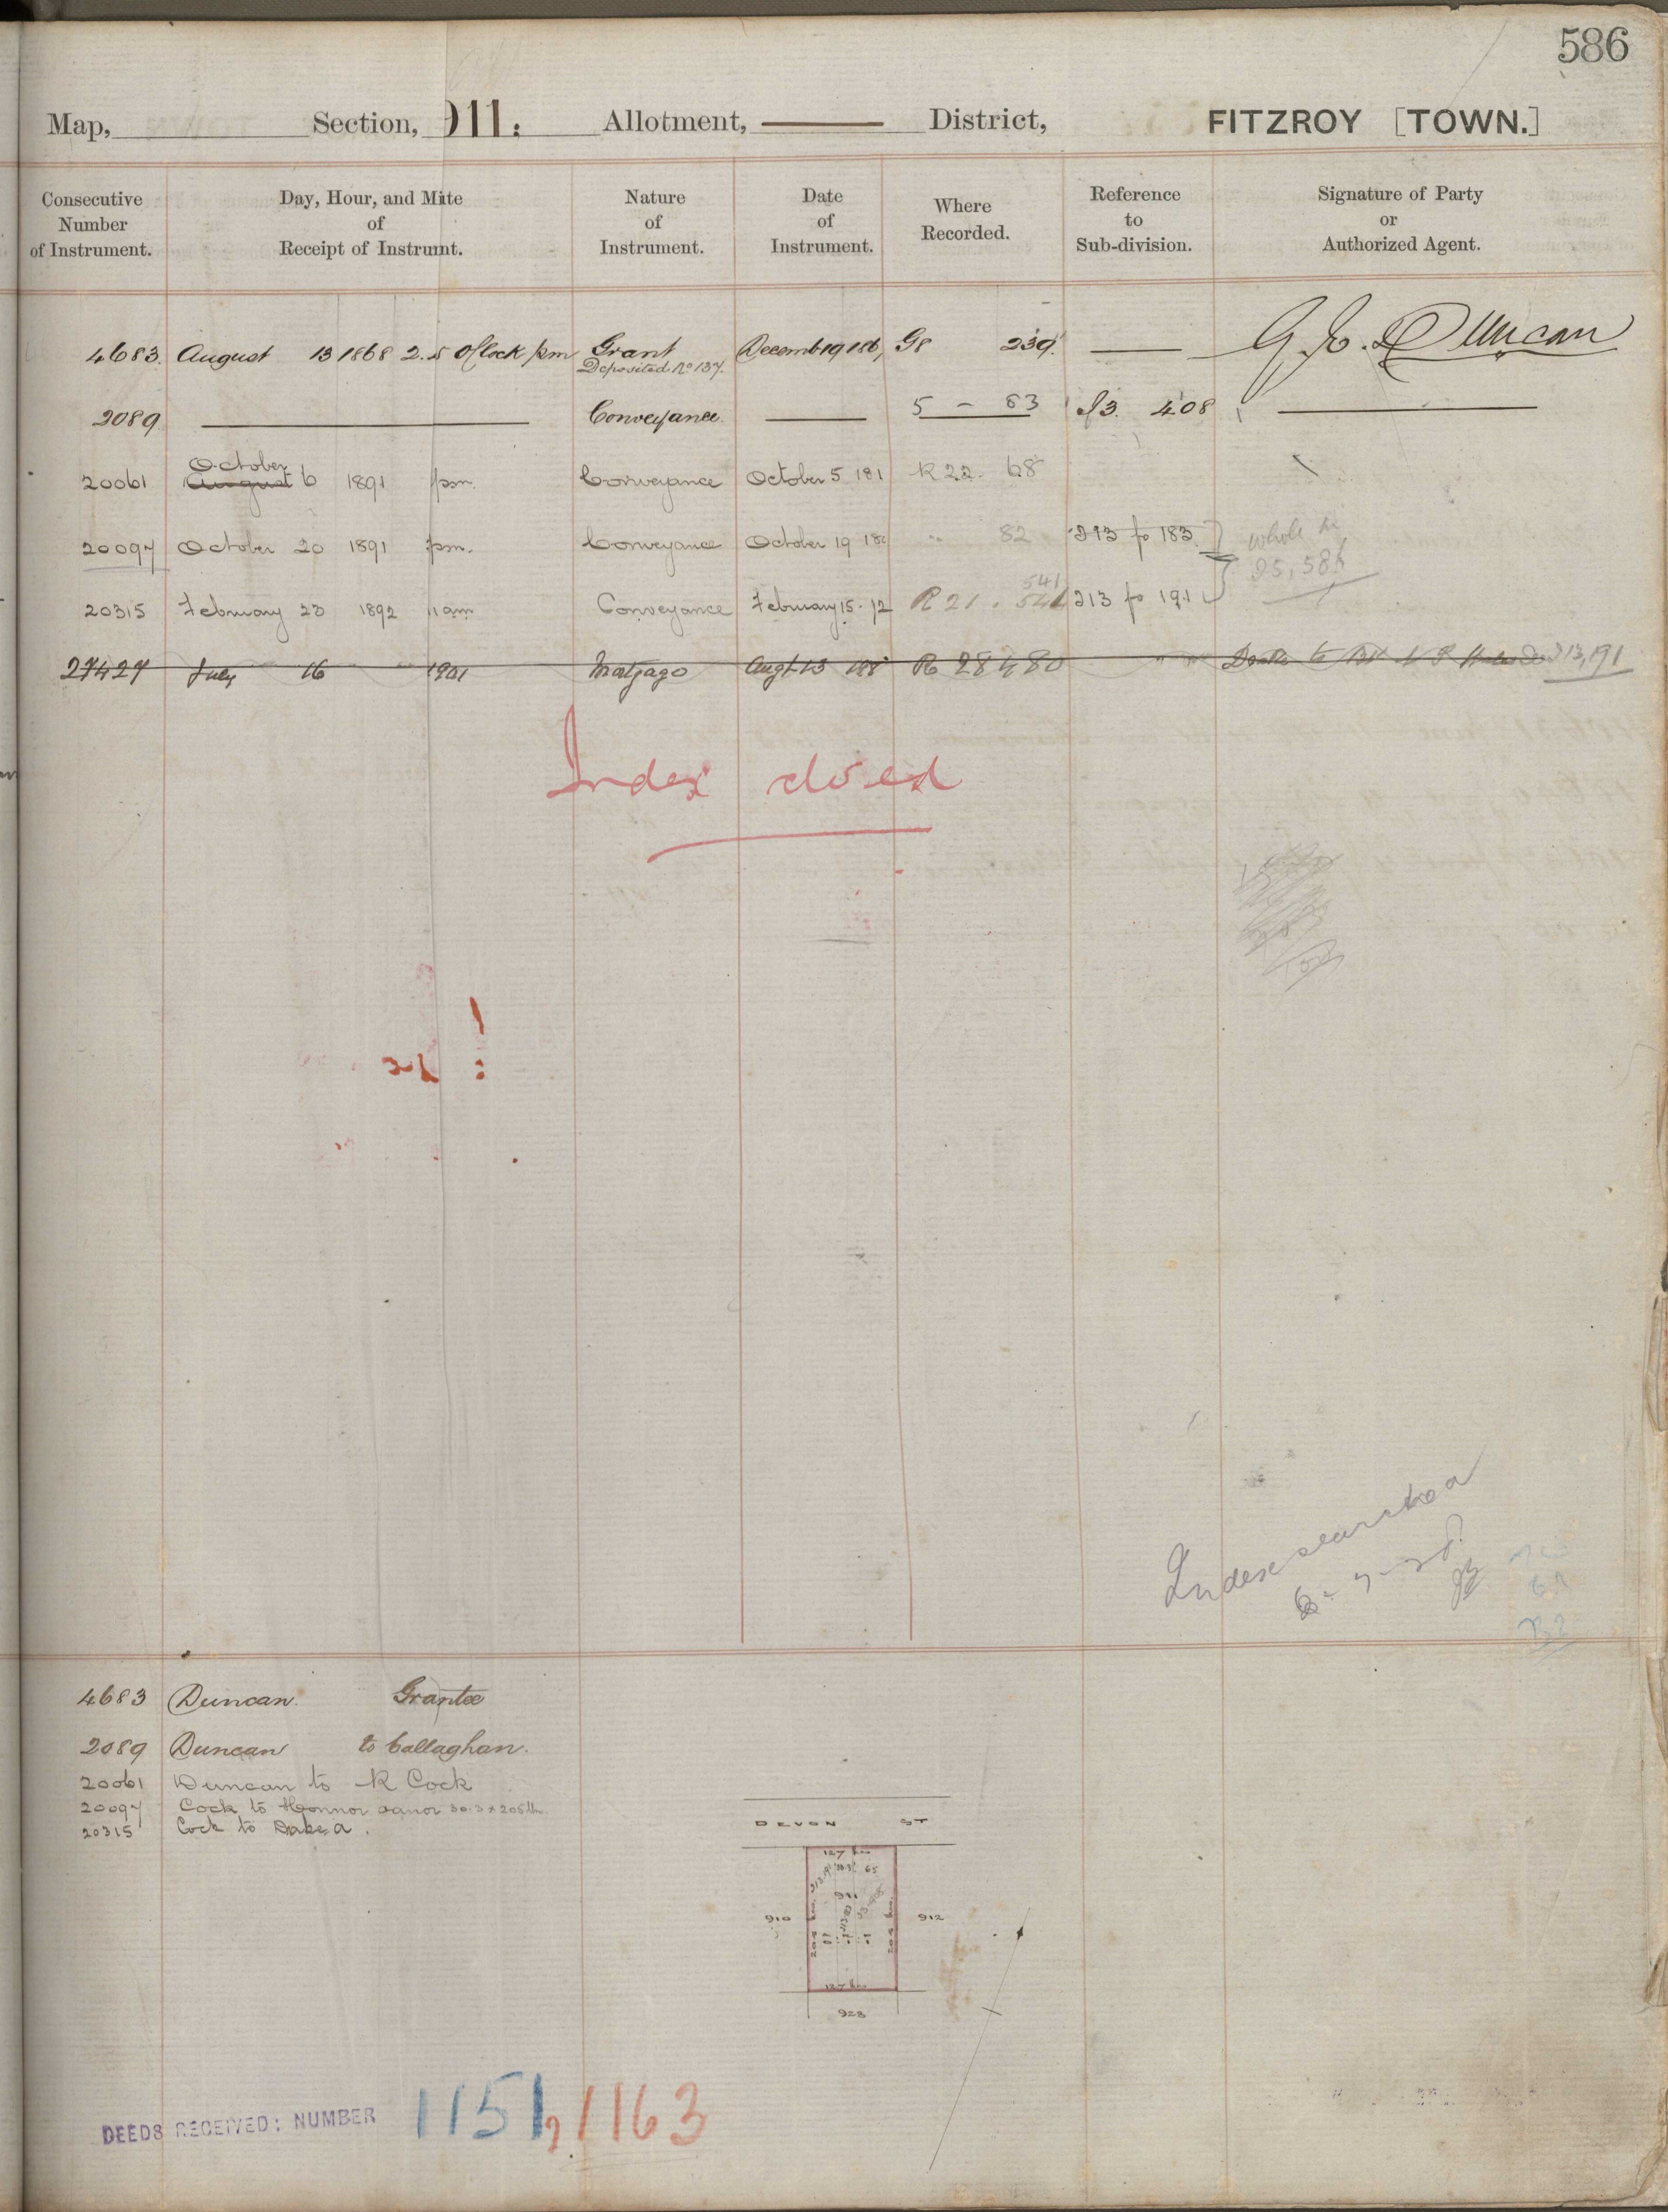 586
Map, Section, 911. Allotment, District, FITZROY [TOWN.]
Consecutive Number of Instrument.
Day, Hour, and Mite of Receipt of Instrumt.
Nature of Instrument.
Date of Instrument.
Where Recorded.
Reference to Sub-division.
Signature of Party or Authorized Agent.
4683. August 13 1868 2. O'Clock pm Grant Decemb 19 186 G8 239. G. Duncan
Deposited No 137.
2089 Conveyance 5 - 83 I3. 408
October
20061 August 6 1891 pm. Conveyance October 5 181 R 22. 68
20097 October 20 1891 pm. Conveyance October 19 18 " 82 I13 fo 183 whole in
I5, 586
541
20315 February 23 1892 11 am Conveyance February 15. 12 R 21. 541 I13 fo 191
27427 July 16 1901 Mortgage Augt 13 188 R 28 480 I13, 191
Index closed
Index searched
4683 Duncan. Grantee
2089 Duncan to Callaghan.
20061 Duncan to R Cock
20097 Cock to Honnor
20315 Cock to
DEVON ST
127 lks
65
911
910
912
127 lks
923
DEEDS RECEIVED: NUMBER 1151, 1163